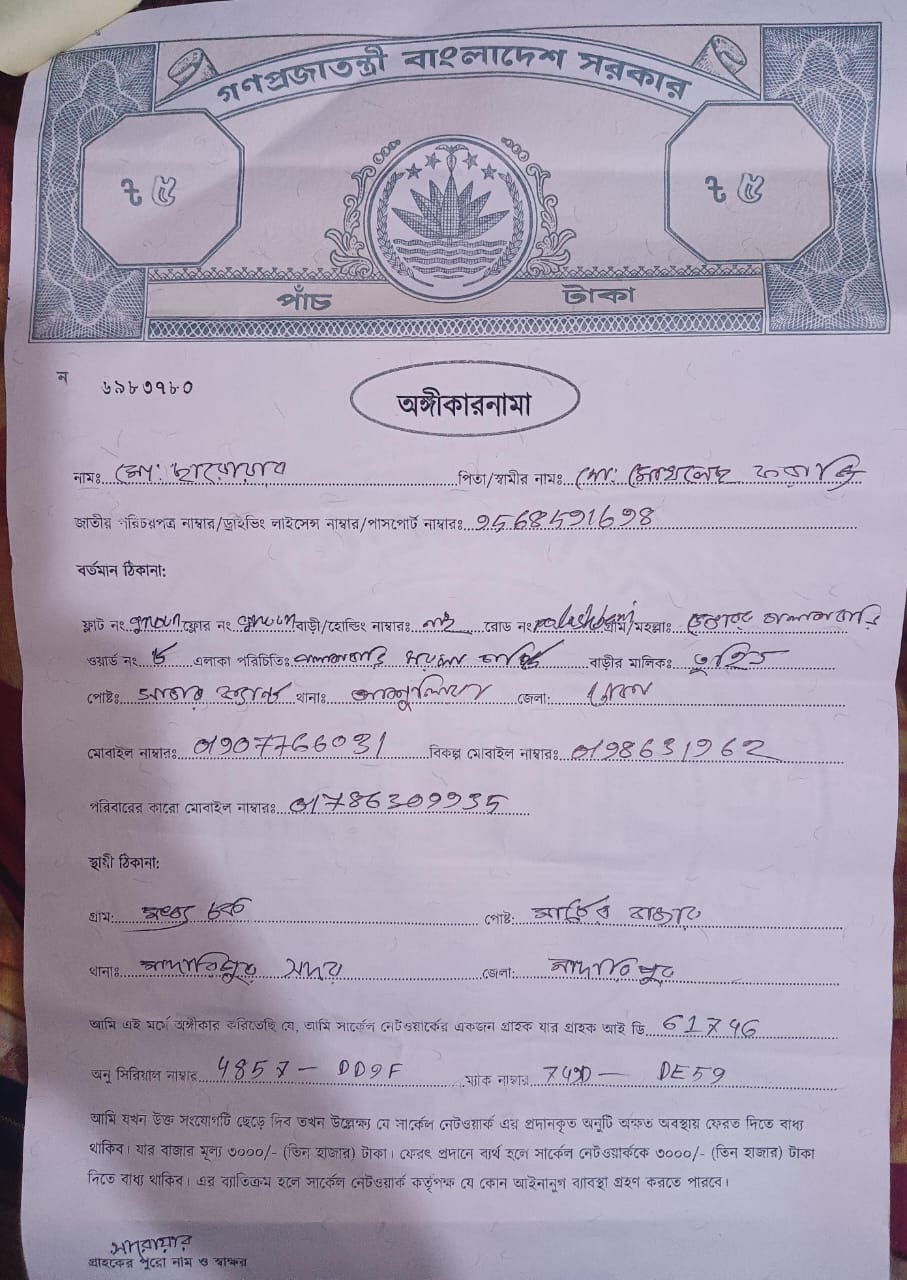 গণপ্রজাতন্ত্রী বাংলাদেশ সরকার
ট ৫ ট ৫
পাঁচ টাকা
ন ৬৯৮৩৭৮০
অঙ্গীকারনামা
নামঃ মো: ছারোয়ার পিতা/স্বামীর নাম: মো:
জাতীয় পরিচয়পত্র নাম্বার/ড্রাইভিং লাইসেন্স নাম্বার/পাসপোর্ট নাম্বারঃ
বর্তমান ঠিকানা:
ফ্লাট নং ফ্লোর নং বাড়ী/হোল্ডিং নাম্বারঃ নাই রোড নং palashbari গ্রাম/মহল্লা:
ওয়ার্ড নং এলাকা পরিচিতিঃ বাড়ীর মালিক: তুহিন
পোষ্টঃ থানাঃ আশুলিয়া জেলা: ঢাকা
মোবাইল নাম্বারঃ 01907766031 বিকল্প মোবাইল নাম্বারঃ 0198631962
পরিবারের কারো মোবাইল নাম্বারঃ 01786309935
স্থায়ী ঠিকানা:
গ্রাম: মধ্য চক পোষ্ট: বাজার
থানাঃ মাদারিপুর সদর জেলা: মাদারিপুর
আমি এই মর্মে অঙ্গীকার করিতেছি যে, আমি সার্কেল নেটওয়ার্কের একজন গ্রাহক যার গ্রাহক আই ডি 61746
অনু সিরিয়াল নাম্বার 4857 - DD9F ম্যাক নাম্বার - DE59
আমি যখন উক্ত সংযোগটি ছেড়ে দিব তখন উল্লেক্ষ্য যে সার্কেল নেটওয়ার্ক এর প্রদানকৃত অনুটি অক্ষত অবস্থায় ফেরত দিতে বাধ্য
থাকিব। যার বাজার মূল্য ৩০০০/- (তিন হাজার) টাকা। ফেরৎ প্রদানে ব্যর্থ হলে সার্কেল নেটওয়ার্ককে ৩০০০/- (তিন হাজার) টাকা
দিতে বাধ্য থাকিব। এর ব্যাতিক্রম হলে সার্কেল নেটওয়ার্ক কর্তৃপক্ষ যে কোন আইনানুগ ব্যাবস্থা গ্রহণ করতে পারবে।
সারোয়ার
গ্রাহকের পুরো নাম ও স্বাক্ষর